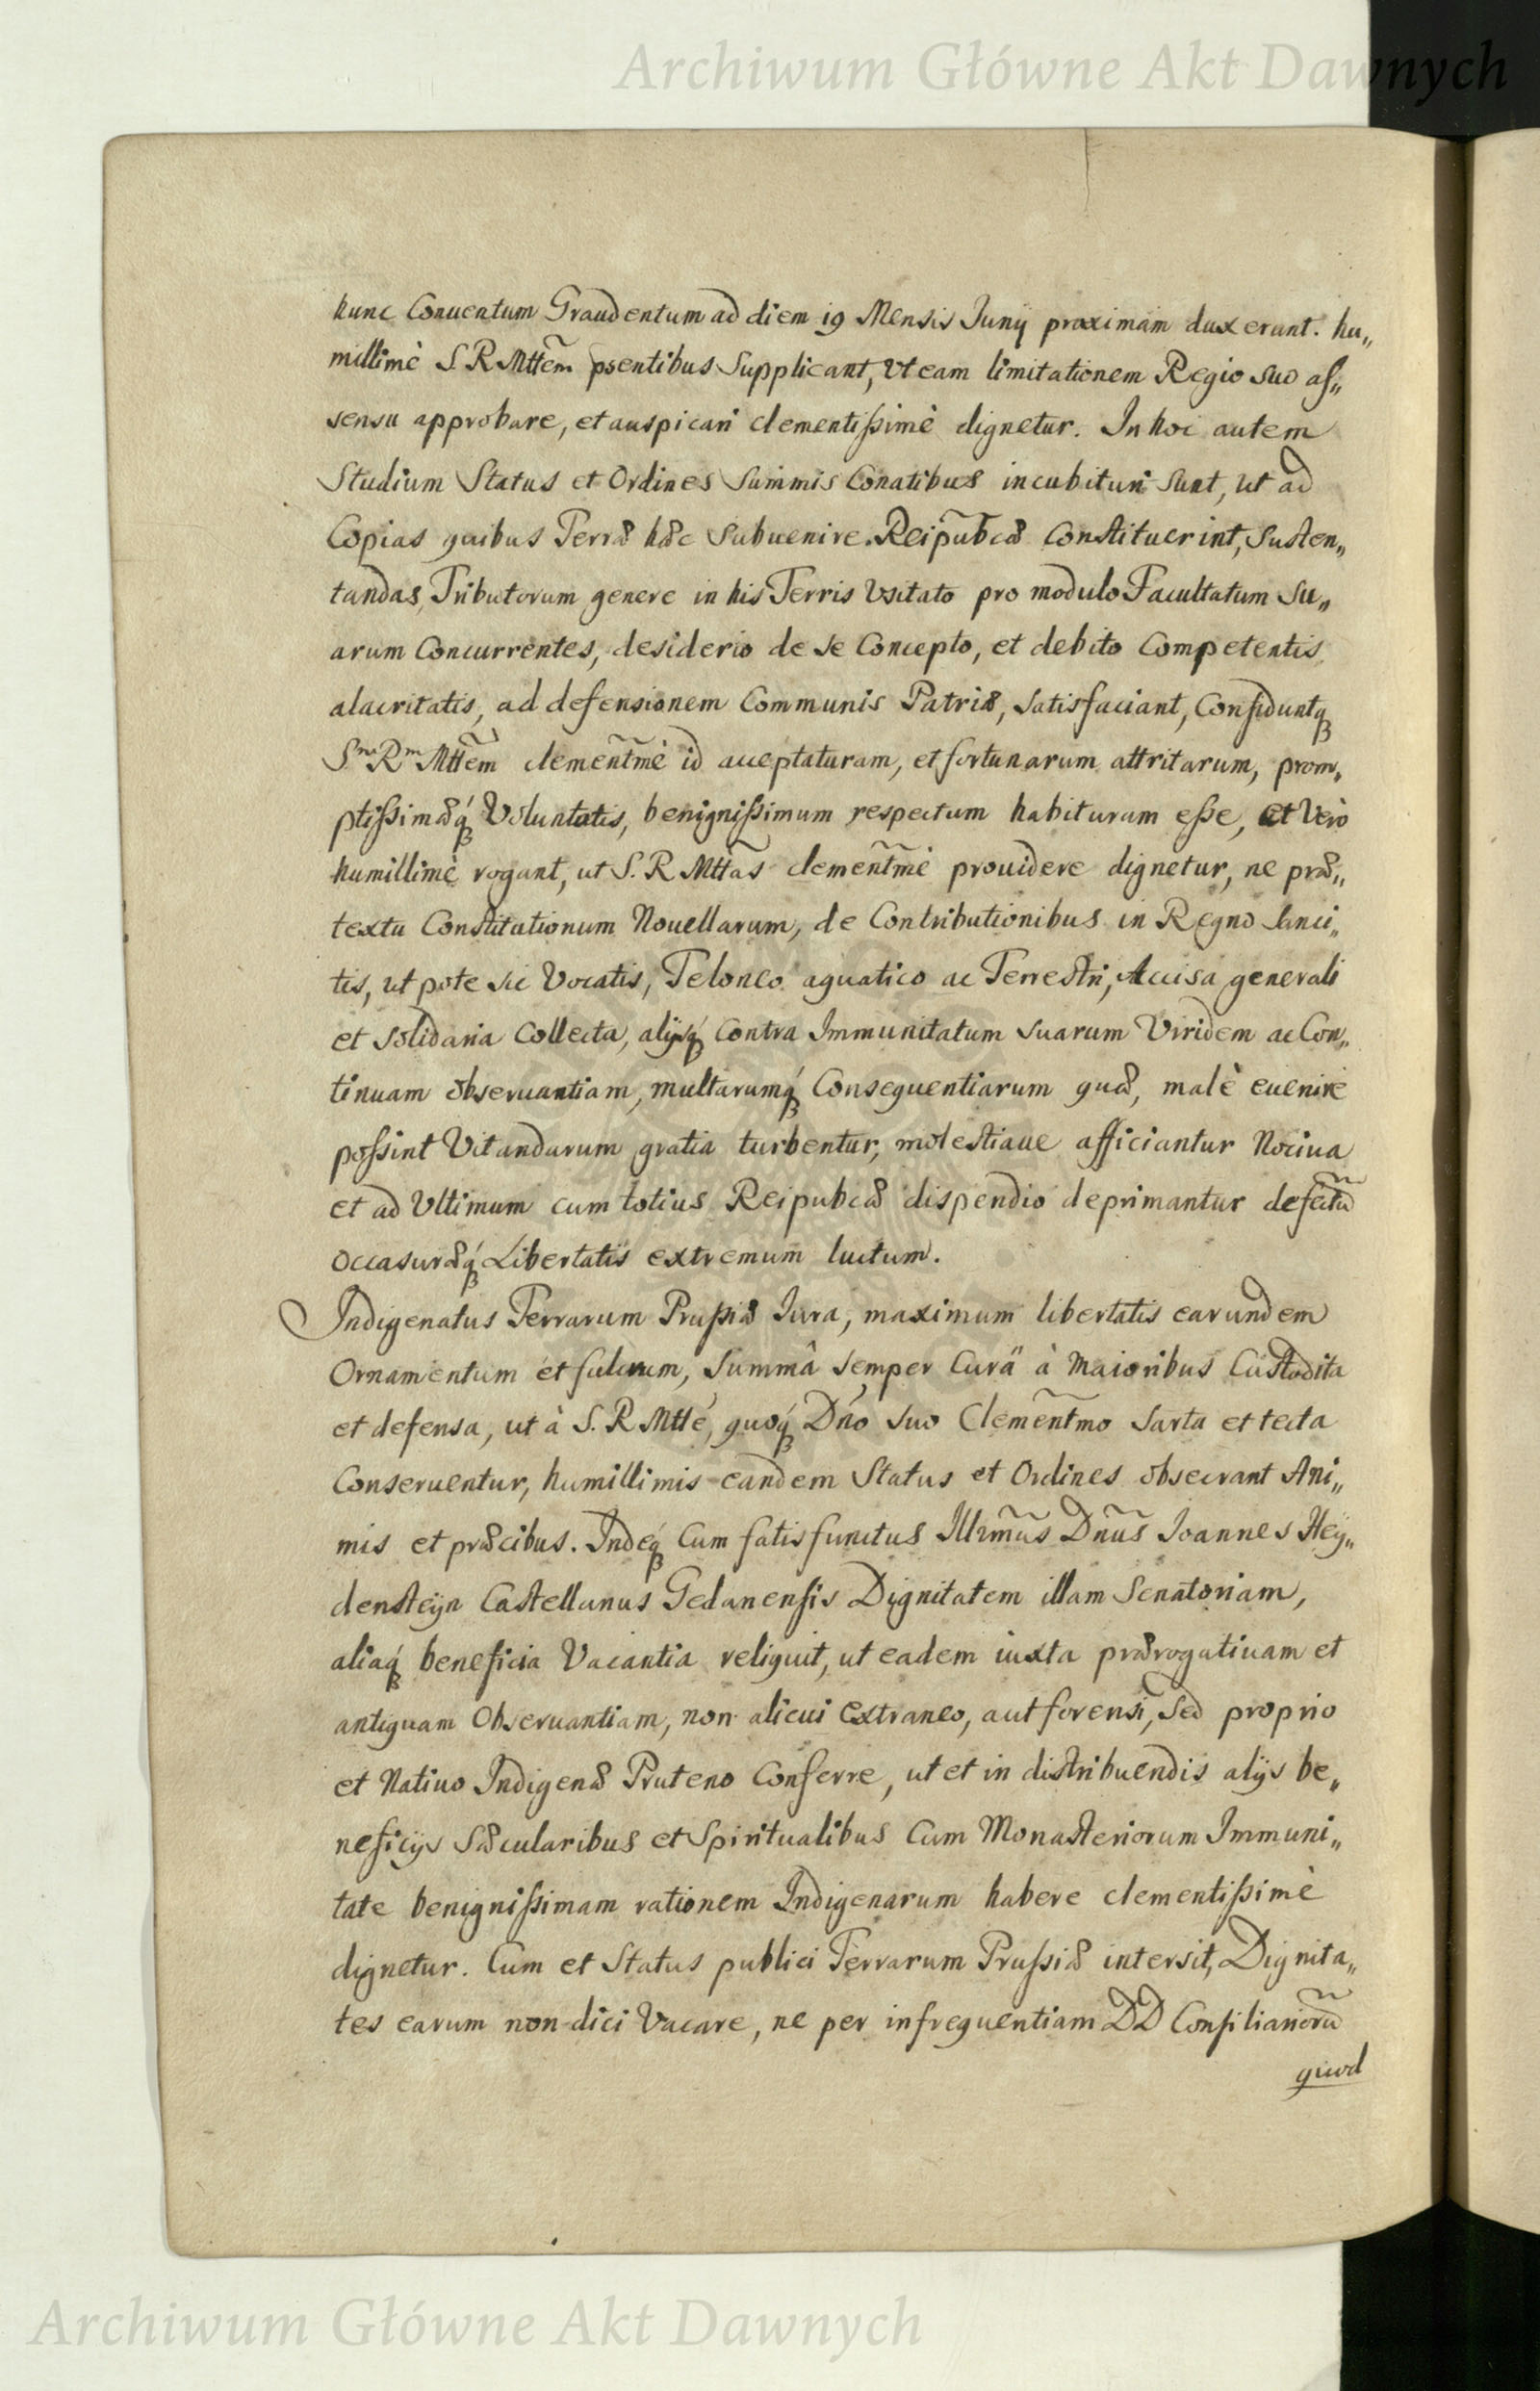 Archiwum Główne Akt Dawnych
hunc Conuentum Graudentum ad diem 19 Mensis Iunÿ proximam duxerunt. hu„
millimè S. R Mttem̃ psentibus Supplicant, Vt eam limitationem Regio suo aſ„
sensu approbare, et auspicari clementiſsimè dignetur. In hoc autem
Studium Status et Ordines Summis Conatibus incubituri Sunt, ut ad
Copias quibus Terræ hæc Subuenire Reipub̃cæ Constituerint, Susten„
tandas, Tributorum genere in his Terris Vsitato pro modulo Facultatum Su„
arum Concurrentes, desiderio de se Concepto, et debito Competentis
alacritatis, ad defensionem Communis Patriæ, satisfaciant, Confiduntq
S.m R.m Mttem̃ clementm̃è id acceptaturam, et fortunarum attritarum, prom„
ptiſsimæq́ Voluntatis, benigniſsimum respectum habituram eſse, et Verò
humillimè rogant, ut S. R Mttãs clementm̃è prouidere dignetur, ne præ„
textu Constitutionum Nouellarum, de Contributionibus in Regno Sanci„
tis, ut pote sic Vocatis, Teloneo aquatico ac Terrestri, Accisa generali
et solidaria Collecta, alÿsq́ Contra Immunitatum suarum Viridem ac Con„
tinuam obseruantiam, multarumq́ Consequentiarum quæ, malè euenire
poſsint Vitandarum gratia turbentur, molestiaue afficiantur Nociua
et ad Vltimum cum totius Reipubcæ dispendio deprimantur defectũ
occasuræq́ Libertatis extremum luctum.
Indigenatus Terrarum Pruſsiæ Iura, maximum libertatis earundem
Ornamentum et fulcrum, Summâ semper Curâ à Maioribus Custodita
et defensa, ut à S. R Mtté, quoq́ Dño suo Clementm̃o Sarta et tecta
Conseruentur, humillimis eandem Status et Ordines obsecrant Ani„
mis et præcibus. Indeq́ Cum fatis functus Illrm̃us Dñus Ioannes Heÿ„
densteÿn Castellanus Gedanensis Dignitatem illam Senatoriam,
aliaq́ beneficia Vacantia reliquit, ut eadem iuxta prærogatiuam et
antiquam Obseruantiam, non alicui extraneo, aut forensi, Sed proprio
et Natiuo Indigenæ Pruteno Conferre, ut et in distribuendis alÿs be„
neficÿs Sæcularibus et Spiritualibus Cum Monasteriorum Immuni„
tate benigniſsimam rationem Indigenarum habere clementiſsimè
dignetur. Cum et Status publici Terrarum Pruſsiæ intersit, Dignita„
tes earum non dici Vacare, ne per infrequentiam DD Consiliariorũ
quod
Archiwum Główne Akt Dawnych